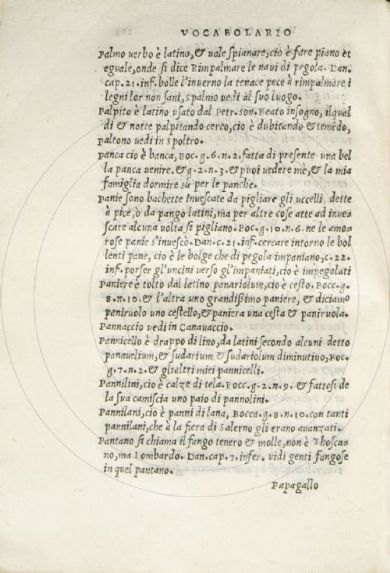 VOCABOLARIO
Palmo uerbo è latino, & uale spianare, ciò è fare piano et
eguale, onde si dice Rimpalmare le naui di pegola. Dan.
cap. 21. inf. bolle l'inuerno la tenace pece à rimpalmare i
legni lor non sani, spalmo uedi al suo luogo.
Palpito è latino usato dal Petr. son. Beato insogno, ilqual
di & notte palpitando cerco, ciò è dubitando & temēdo,
paltono uedi in spoltro.
panca ciò è banca, Boc. g. 6. n. 2. fatta di presente una bel
la panca uenire. & g. 2. n. 3. & puoi vedere mè, & la mia
famiglia dormire sù per le panche.
Panie sono bachette inuescate da pigliare gli uccelli, dette
à pice, ò da pango latini, ma per altre cose atte ad inue
scare alcuna uolta si pigliano. Boc. g. 10. n. 6. ne le amo
rose panie s'inuescò. Dan. c. 21. inf. cercare intorno le bol
lenti pane, ciò è le bolge che di pegola impaniano, c. 22.
inf. porser gl'uncini verso gl'impaniati, ciò è impegolati
Paniere è tolto dal latino panariolum, ciò è cesto. Bocc. g.
8. n. 10. & l'altra uno grandissimo paniere, & diciamo
paniruolo uno cestello, & paniera una cesta & paniruola.
Pannaccio uedi in Canauaccio.
Pannicello è drappo di lino, da latini secondo alcuni detto
panauelium, & sudarium & sudariolum diminutiuo, Boc.
g. 7. n. 2. & gli altri miei pannicelli.
Pannilini, ciò è calze di tela. Bocc. g. 2. n. 9. & fattosi de
la sua camiscia uno paio di pannolini.
Pannilani, ciò è panni di lana, Bocca. g. 8. n. 10. con tanti
pannilani, che à la fiera di Salerno gli erano auanzati.
Pantano si chiama il fango tenero & molle, non è Thosca
no, ma Lombardo. Dan. cap. 7. infer. vidi genti fangose
in quel pantano.
Papagallo